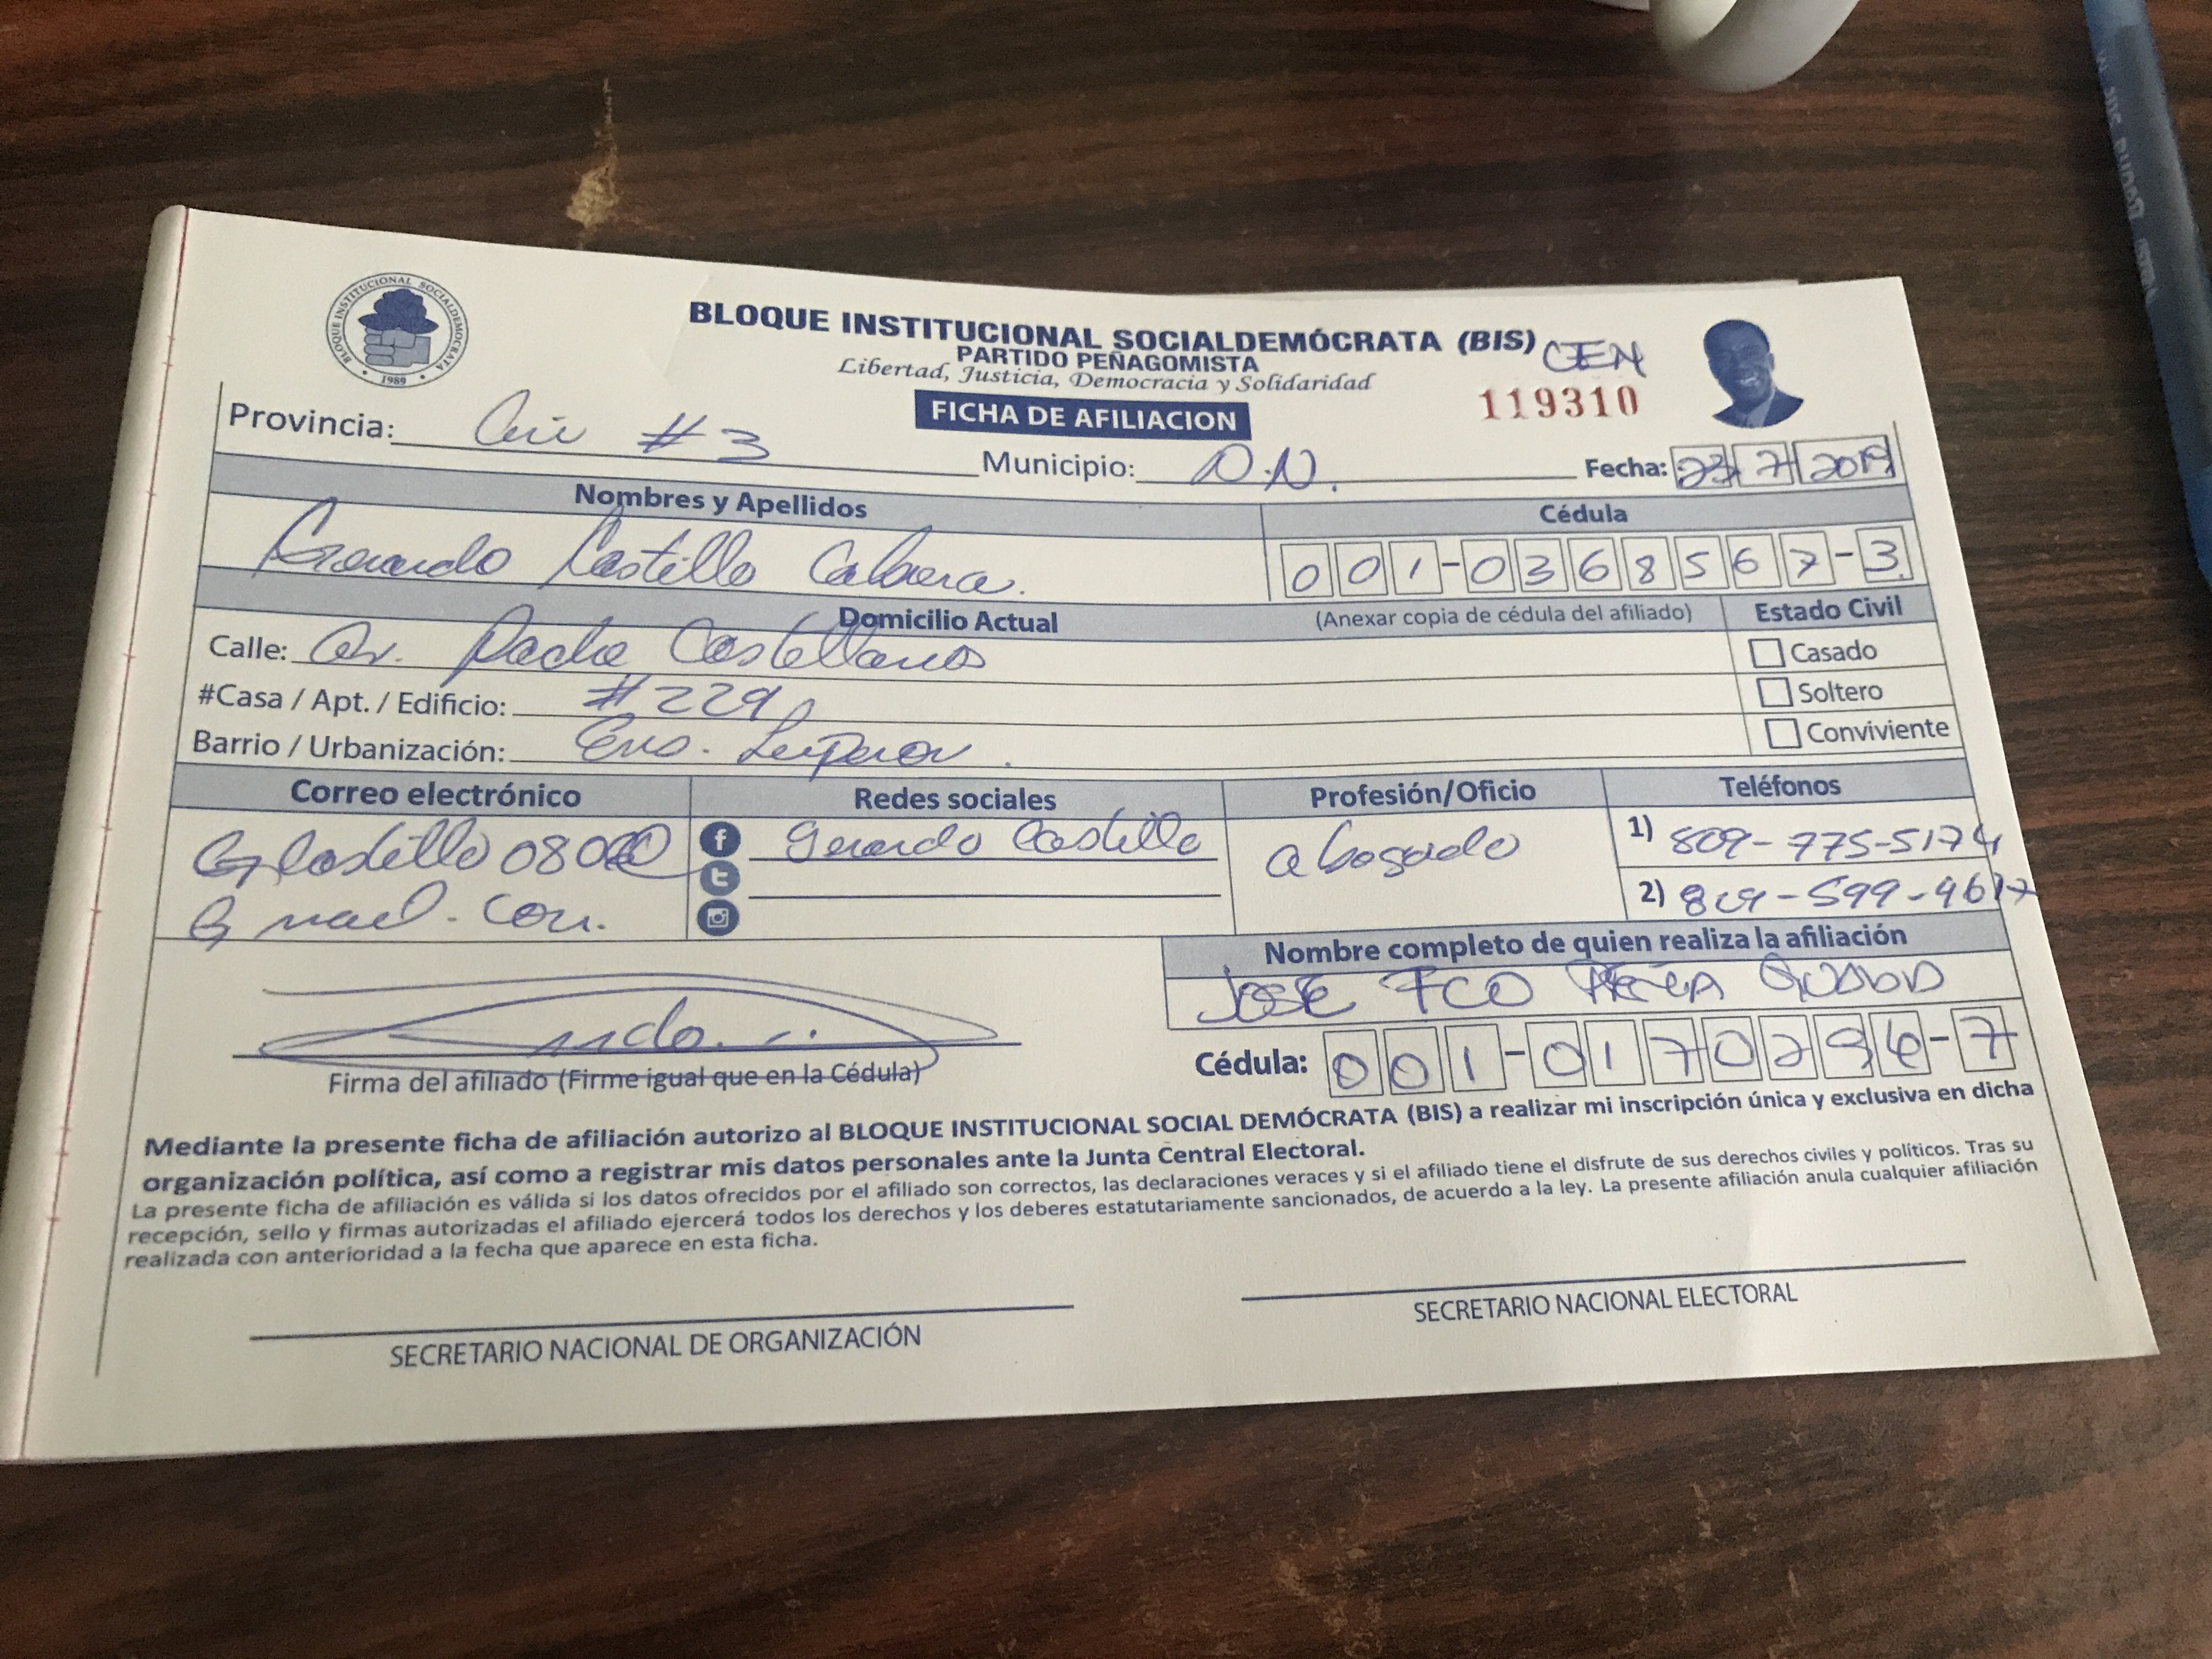 BLOQUE INSTITUCIONAL SOCIALDEMOCRATA
1989
BLOQUE INSTITUCIONAL SOCIALDEMÓCRATA (BIS) CEN
PARTIDO PEÑAGOMISTA
Libertad, Justicia, Democracia y Solidaridad
119310
FICHA DE AFILIACION
Provincia: #3
Municipio: D.N.
Fecha: 23 7 2019
Nombres y Apellidos
Cédula
Gerardo Castillo Cabrera.
001-0368567-3
Domicilio Actual
(Anexar copia de cédula del afiliado)
Estado Civil
Calle: Av. Castellanos
Casado
#Casa / Apt. / Edificio: #229
Soltero
Barrio / Urbanización: Ens. Luperon.
Conviviente
Correo electrónico
Redes sociales
Profesión/Oficio
Teléfonos
Gerardo Castillo
abogado
1) 809-775-5174
2)
Nombre completo de quien realiza la afiliación
JOSE FCO PEÑA
Firma del afiliado (Firme igual que en la Cédula)
Cédula: 001-0170294-7
Mediante la presente ficha de afiliación autorizo al BLOQUE INSTITUCIONAL SOCIAL DEMÓCRATA (BIS) a realizar mi inscripción única y exclusiva en dicha
organización política, así como a registrar mis datos personales ante la Junta Central Electoral.
La presente ficha de afiliación es válida si los datos ofrecidos por el afiliado son correctos, las declaraciones veraces y si el afiliado tiene el disfrute de sus derechos civiles y políticos. Tras su
recepción, sello y firmas autorizadas el afiliado ejercerá todos los derechos y los deberes estatutariamente sancionados, de acuerdo a la ley. La presente afiliación anula cualquier afiliación
realizada con anterioridad a la fecha que aparece en esta ficha.
SECRETARIO NACIONAL DE ORGANIZACIÓN
SECRETARIO NACIONAL ELECTORAL